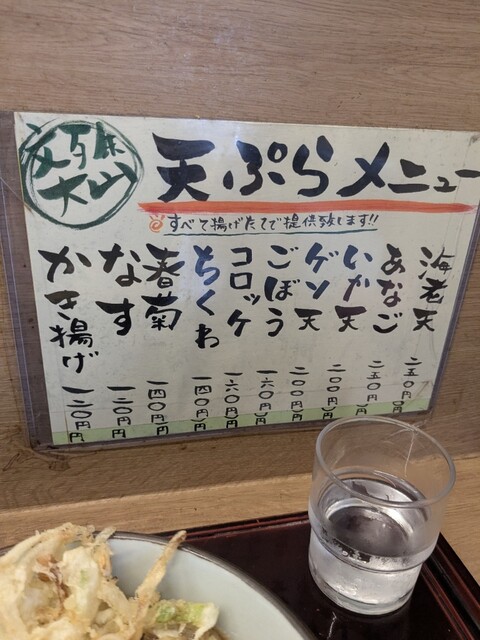 天ぷらメニュー
すべて揚げたてで提供致します!!
海老天 二五〇円
あなご 二五〇円
いか天 二〇〇円
ゲソ天 二〇〇円
ごぼう 一六〇円
コロッケ 一六〇円
ちくわ 一四〇円
春菊 一四〇円
なす 一二〇円
かき揚げ 一二〇円